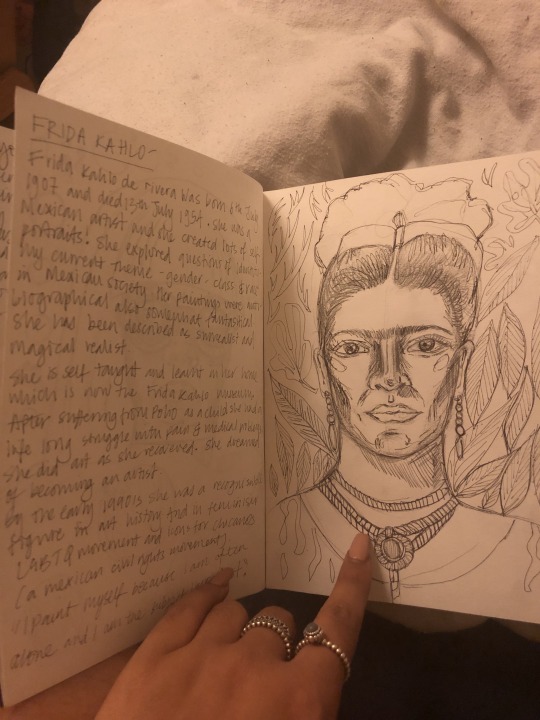 FRIDA KAHLO
Frida Kahlo de Rivera was born 6th July
1907 and died 13th July 1954. She was a
Mexican artist and she created lots of self
portraits! She explored questions of identity
my current theme - gender - class & race
in Mexican society. Her paintings were auto
biographical also somewhat fantastical
she has been described as surrealist and
magical realist.
She is self taught and learnt in her home
which is now the Frida Kahlo museum.
After suffering from Polio as a child she had a
life long struggle with pain & medical
she did art as she recovered. She dreamed
of becoming an artist.
by the early 1990s she was a recognised
figure in art history and in feminism
LGBTQ movement and icons for chicanos
(a mexican civil rights movement)
"I paint myself because I am often
alone and I am the subject